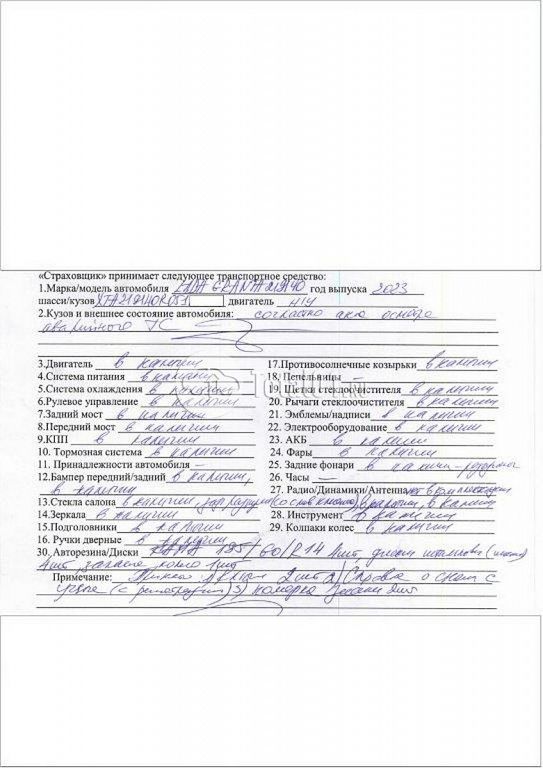 «Страховщик» принимает следующее транспортное средство:
1.Марка/модель автомобиля LADA GRANTA 219140 год выпуска 2023
шасси/кузов двигатель
2.Кузов и внешнее состояние автомобиля: согласно акта осмотра
аварийного ТС
3.Двигатель в наличии 17.Противосолнечные козырьки в наличии
4.Система питания в наличии 18. Пепельницы —
5.Система охлаждения в наличии 19. Щетки стеклоочистителя в наличии
6.Рулевое управление в наличии 20. Рычаги стеклоочистителя в наличии
7.Задний мост в наличии 21. Эмблемы/надписи в наличии
8.Передний мост в наличии 22. Электрооборудование в наличии
9.КПП в наличии 23. АКБ в наличии
10. Тормозная система в наличии 24. Фары в наличии
11. Принадлежности автомобиля — 25. Задние фонари в наличии
12.Бампер передний/задний в наличии, 26. Часы —
в наличии 27. Радио/Динамики/Антенна
13.Стекла салона в наличии, в наличии, в наличии
14.Зеркала в наличии 28. Инструмент в наличии
15.Подголовники в наличии 29. Колпаки колес в наличии
16. Ручки дверные в наличии
30. Авторезина/Диски 185/60/R14 4шт диски
4шт запасное колесо 1шт
Примечание: 2шт 2) Справка о снят с
учета (с регистрации) 3)